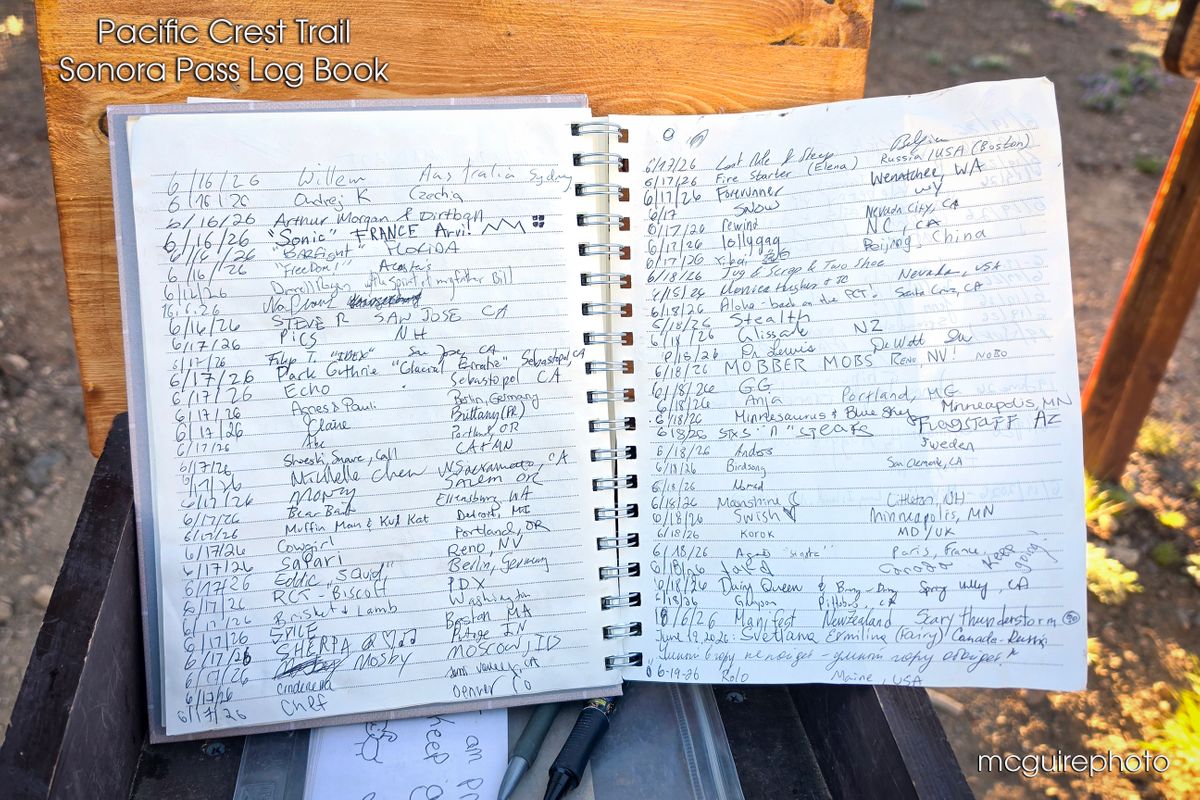 Pacific Crest Trail
Sonora Pass Log Book
6/16/26 Willem Australia Sydney
6/16/26 Ondrej K Czechia
6/16/26 Arthur Morgan & Dirtbqn
6/16/26 "Sonic" FRANCE
6/16/26 "BARFight" FLORIDA
6/16/26 "FreeDom!"
6/12/26 with Spirit of my father Bill
16.6.26
6/16/26 STEVE R SAN JOSE CA
6/17/26 Pics NH
6/17/26 Filip T. "IBEX" San Jose, CA
6/17/26 Park Guthrie "Glacial Erratic" Sebastopol, CA
6/17/26 Echo Sebastopol CA
6/17/26 Agnes & Pauli Berlin, Germany
6/17/26 Claire Brittany (FR)
6/17/26 Abe Portland, OR
6/17/26 CA + AN
6/17/26 Michelle Chen W Sacramento, CA
6/17/26 Money SALEM OR
6/17/26 Bear Bait Ellensburg WA
6/17/26 Muffin Man & Kit Kat Detroit, MI
6/17/26 Cowgirl Portland, OR
6/17/26 Safari Reno, NV
6/17/26 Eddie, "Squid" Berlin, Germany
6/17/26 RCT - Biscott PDX
6/17/26 Brisket & Lamb Washington
6/17/26 SPICE Boston MA
6/17/26 SHERPA Portage IN
6/17/26 Mosby MOSCOW, ID
6/17/26 Cinderella simi valley, CA
6/17/26 Chef Denver CO
6/17/26 Belgium
6/17/26 Fire Starter (Elena) Russia/USA (Boston)
6/17/26 Forerunner Wenatchee, WA
6/17 SNOW WY
6/17/26 rewind Nevada City, CA
6/17/26 lollygag NC, CA
6/17/26 Beijing, China
6/18/26 Jug & Scrap & Two Shoe
Monica Hughes Nevada, USA
6/18/26 Aloha - back on the PCT! Santa Cruz, CA
6/18/26 Stealth
6/18/26 Glissade NZ
6/18/26 Lewis DeWitt
6/18/26 MOBBER MOBS RENO NV! NOBO
6/18/26 GG
6/18/26 Anja Portland, ME
6/18/26 Minnesaurus & Blue Sky Minneapolis, MN
6/18/26 FLAGSTAFF AZ
6/18/26 Anders Sweden
6/18/26 Birdsong San Clemente, CA
6/18/26 Nomad
6/18/26 Moonshine Littleton, NH
6/18/26 Swish Minneapolis, MN
6/18/26 Korok MD/UK
6/18/26 Agnes "siesta" Paris, France
6/18/26 Canada Keep going!
6/18/26 Dairy Queen & Valley, CA
6/18/26
18/6/26 Manifest New Zealand Scary thunderstorm
June 19, 2026: Svetlana Ermilina (Fairy) Canada-Russia
Умный в гору не пойдет - умный гору обойдет!
6-19-26 Rolo Maine, USA
mcguirephoto